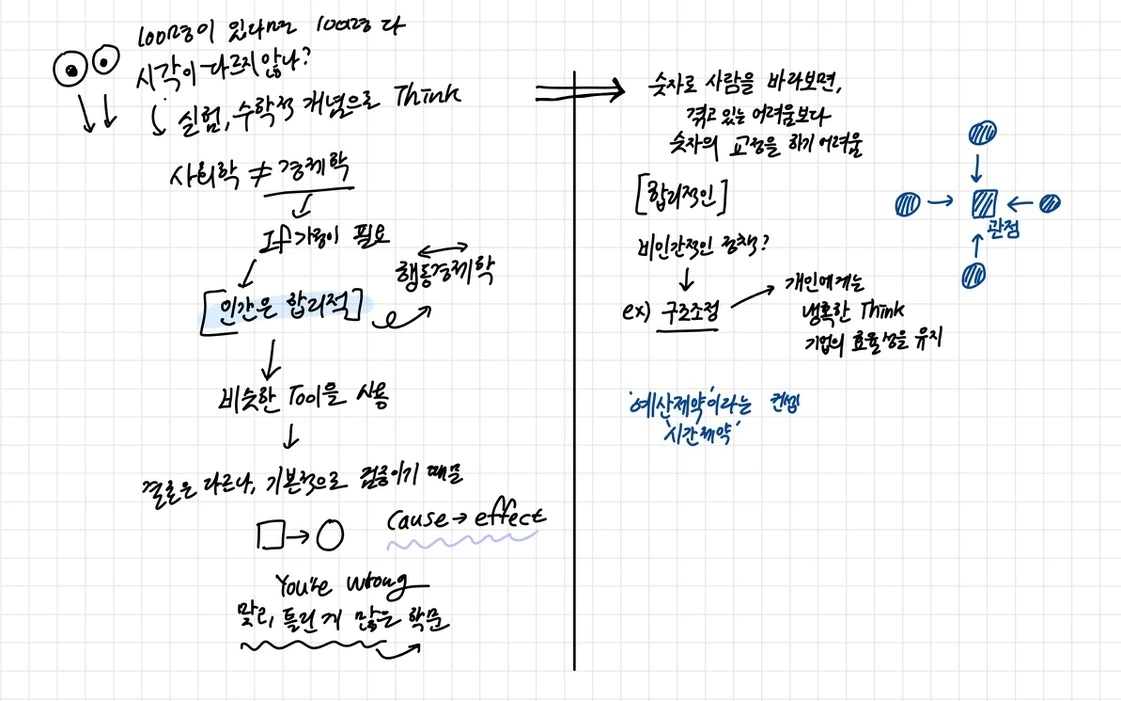 100명이 있다면 100명 다
시각이 다르지 않나?
실험, 수학적 개념으로 Think
사회학 ≠ 경제학
If 가정이 필요
행동경제학
[인간은 합리적]
비슷한 Tool을 사용
결론은 다르나, 기본적으로 검증이기 때문
□→○
Cause → effect
You're wrong
맞고, 틀린 게 많은 학문
숫자로 사람을 바라보면,
겪고 있는 어려움보다
숫자의 교정을 하기 어려움
[합리적인]
비인간적인 정책?
ex) 구조조정
개인에게는
냉혹한 Think
기업의 효율성을 유지
관점
'예산제약'이라는 컨셉
'시간제약'